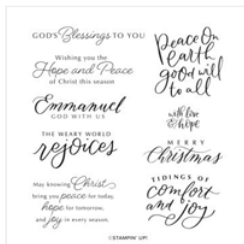 GOD'S Blessings TO YOU
Wishing you the
Hope and Peace
of Christ this season
Emmanuel
GOD WITH US
THE WEARY WORLD
rejoices
May knowing Christ
bring you peace for today,
hope for tomorrow,
and joy in every season.
Peace On
earth
good will
to all
with love
& hope
MERRY
Christmas
TIDINGS OF
comfort
& joy
©STAMPIN' UP!